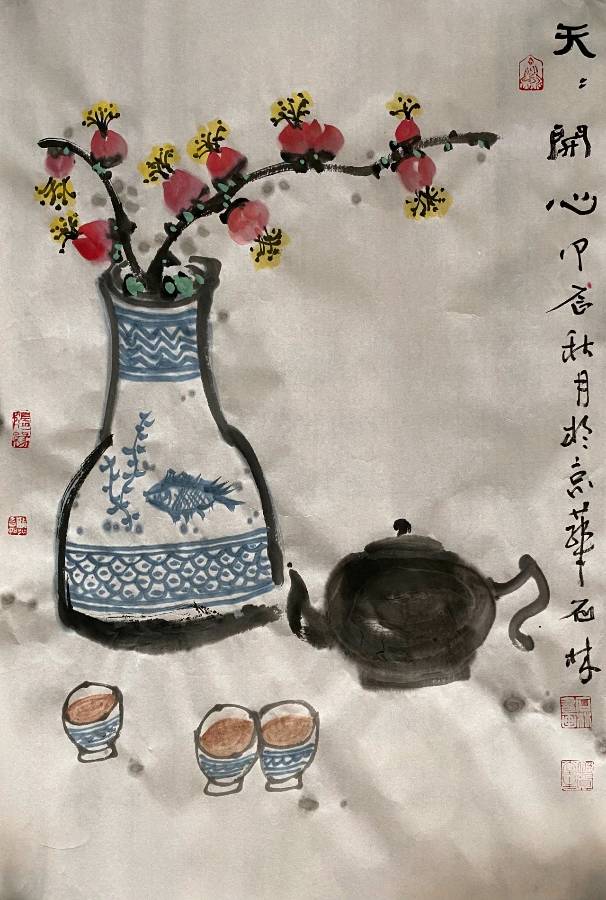 天〻開心甲辰秋月於京華石林